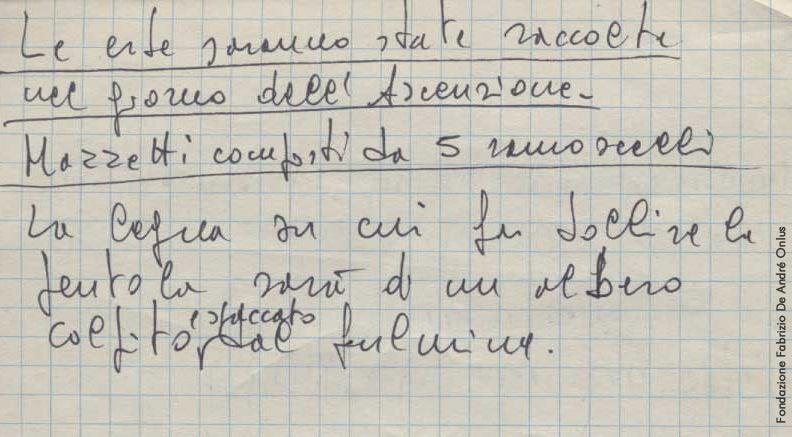 Le erbe saranno state raccolte
nel giorno dell'Ascenzione.
Mazzetti composti da 5 ramoscelli
La legna su cui far bollire la
pentola sarà di un albero
colpito e spaccato dal fulmine.
Fondazione Fabrizio De André Onlus